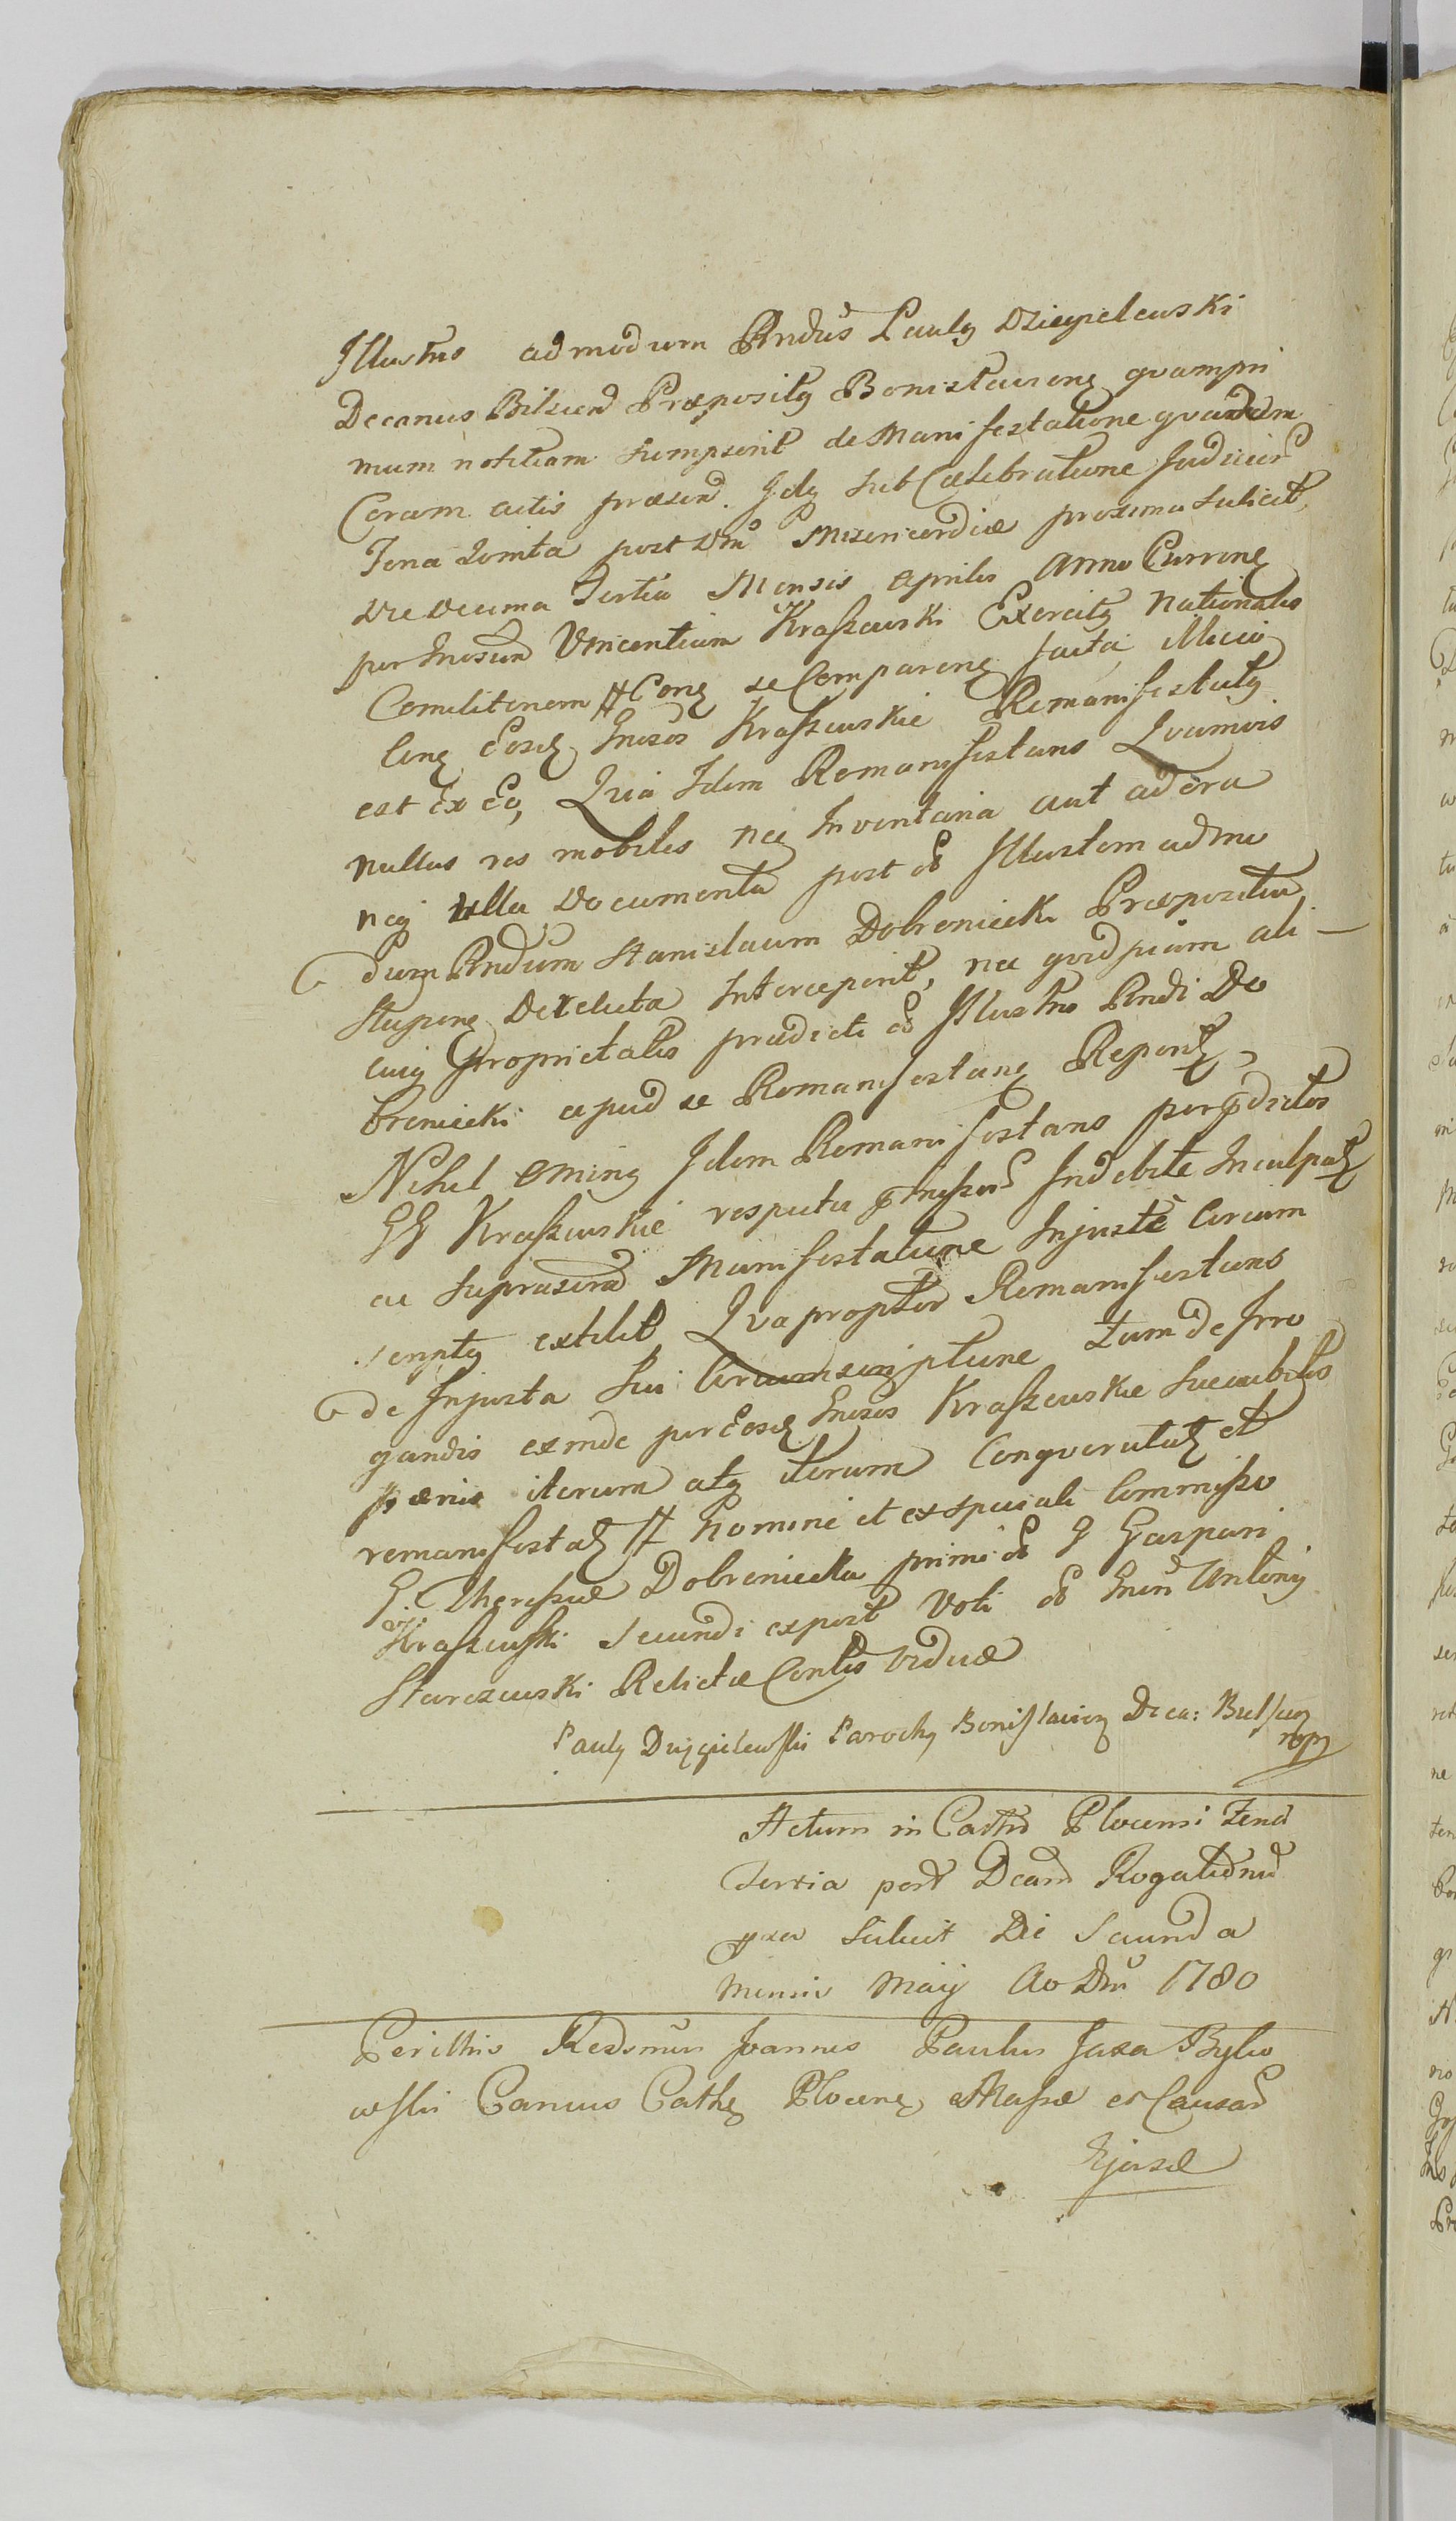 Illustris admodum Rndus Paulg Dziegielewski
Decanus Bilscen Præpositg Bonislavieng quampri
mum notitiam sumpserit de Manifestatione quadam
Coram actis præsen. Idq sub Cælebratione Judicior
Feria Quinta post Dm Misericordiæ proxima Sulicet
Die Decima Tertia Mensis Aprilis Anno Curreng
per Gnosum Vincentium Kraszewski Exercitg Nationalis
Comilitonem Cong se Compareng facta Illico
Cong Eosd Gnosos Kraszewskie Remanifestatg
est Ex Eo, Quia Idem Remanifestans Quamvis
nullas res mobiles neq Inventaria aut ad era
neq ulla Documenta post ol Illustrem admo
dum Rndum Stanislaum Dobreniecki Præpositum
Stupeng Derelicta Interceperit, nec quidpiam ali -
cuig Proprietatis prædicti ol Illustris Rndi Do
breniecki apud se Remanifestang Reperit,
Nihil oming Idem Remanifestans per prdictos
GG Kraszewskie respectu pmissor Indebite Inculpat
ac suprascrta Manifestatione Injuste Circum
scriptg extitit Quapropter Remanifestans
de Injusta sui Circumscriptione tum de Irro
gandis exinde per Eosd Gnosos Kraszewskie succubitis
pænis iterum atq iterum Conqueratat et
remanifestat Nomine et ex speciali Commisso
G. Theressiæ Dobreniecka primi ol G Gaspari
Kraszewski Secundi expost Voti ol Gnen Antonij
Starczewski Relictæ Contis Viduæ
Paulg Dzięgielewski Parochg Bonislavien Deca: Bielscen
mpp
Actum in Castro Plocensi Feria
Tertia post Dcam Rogationu
pxa Sulicet Die Secunda
Mensis Maij Ao Dni 1780
Perillris Redsmus Joannes Paulus Jaxa Bylio
wski Canus Cathg Ploceng Massæ et Causar
Ejusd